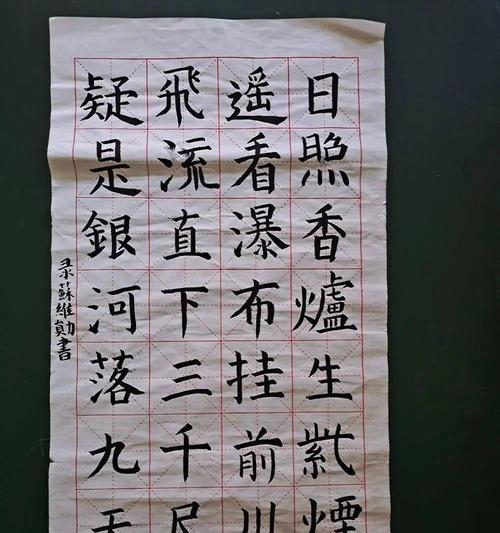 日照香爐生紫煙
遥看瀑布挂前川
飛流直下三千尺
疑是銀河落九天
录蘇維勛書